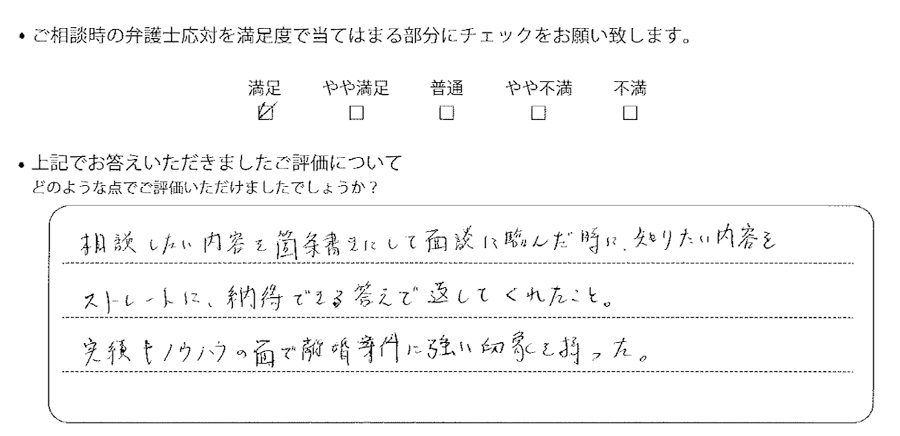 • ご相談時の弁護士応対を満足度で当てはまる部分にチェックをお願い致します。
満足 やや満足 普通 やや不満 不満
☑ □ □ □ □
• 上記でお答えいただきましたご評価について
どのような点でご評価いただけましたでしょうか？
相談したい内容を箇条書きにして面談に臨んだ時に、知りたい内容を
ストレートに、納得できる答えで返してくれたこと。
実績もノウハウの面で離婚事件に強い印象を持った。